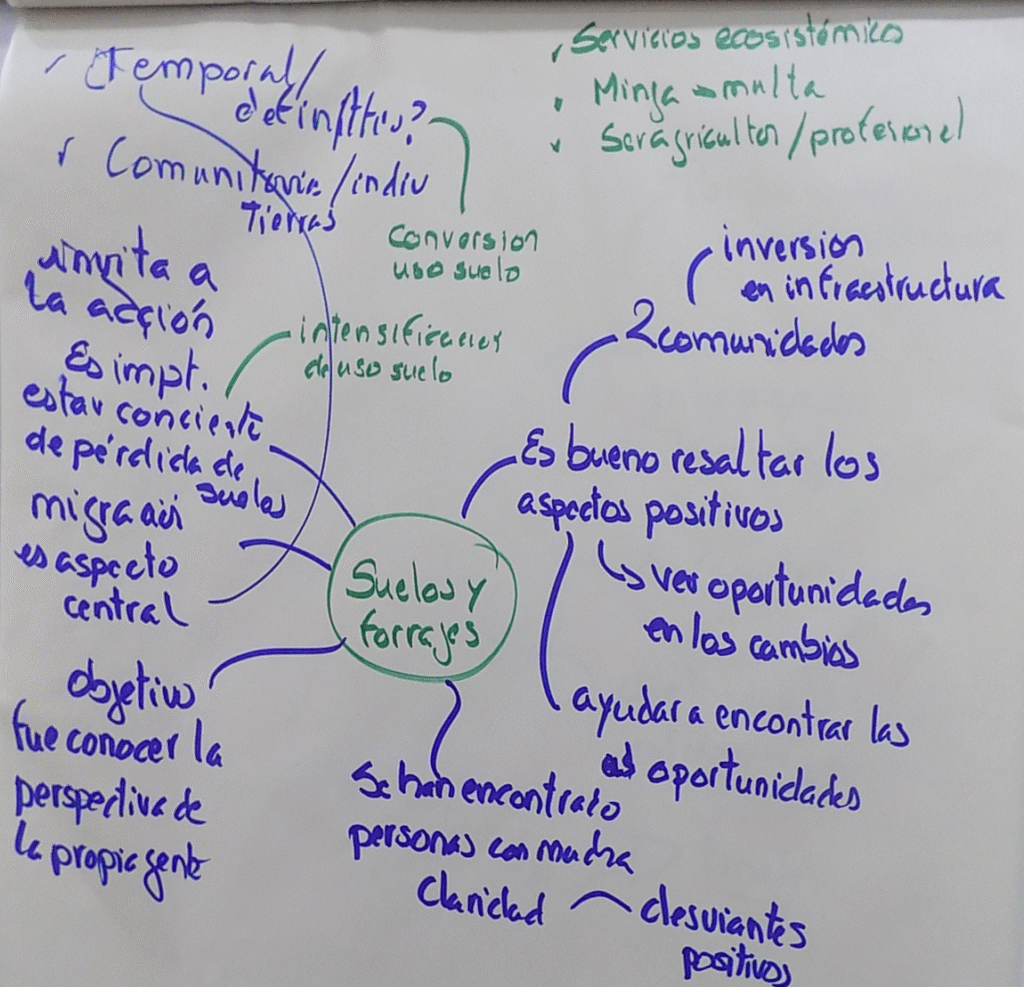 ✓ Temporal/
definitivo?
✓ Comunitaria/indiv
Tierras
✓ Servicios ecosistémico
• Minga - multa
✓ Ser agricultor/profesional
Conversion
uso suelo
invita a
la acción
intensificacion
de uso suelo
Es impt.
estar conciente
de pérdida de
suelos
migración
es aspecto
central
objetivo
fue conocer la
perspectiva de
la propia gente
Suelos y
forrajes
inversion
en infraestructura
2 comunidades
Es bueno resaltar los
aspectos positivos
↳ ver oportunidades
en los cambios
ayudar a encontrar las
oportunidades
Se han encontrato
personas con mucha
Claridad
desviantes
positivos